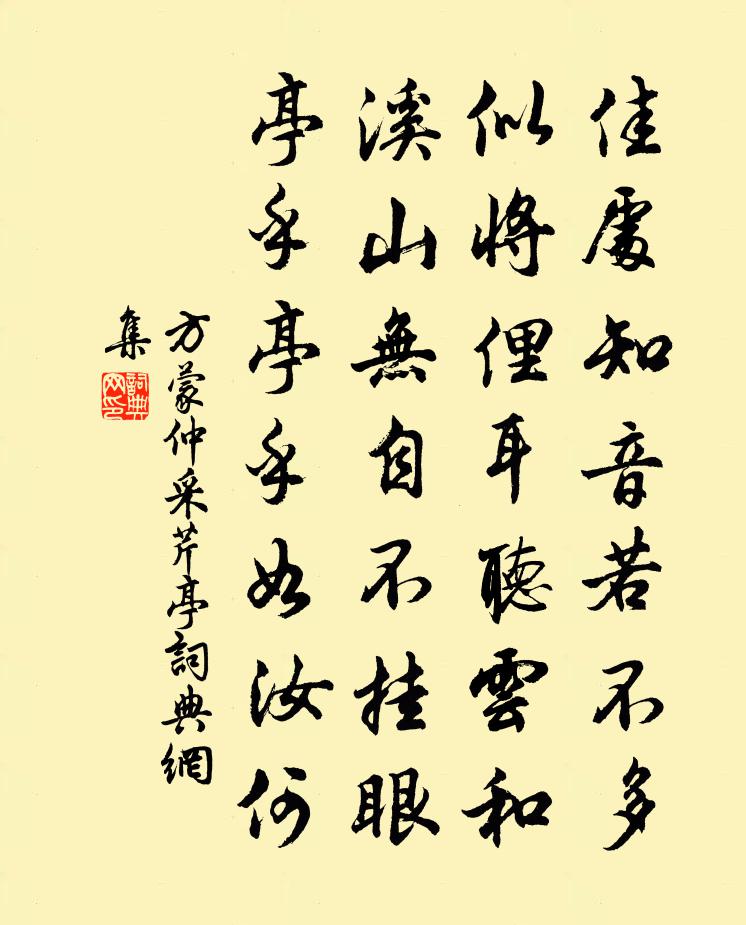 佳處知音若不多
似將俚耳聽雲和
溪山無自不挂眼
亭乎亭乎如汝何
方蒙仲采芹亭詞典網
集
詞典
网印